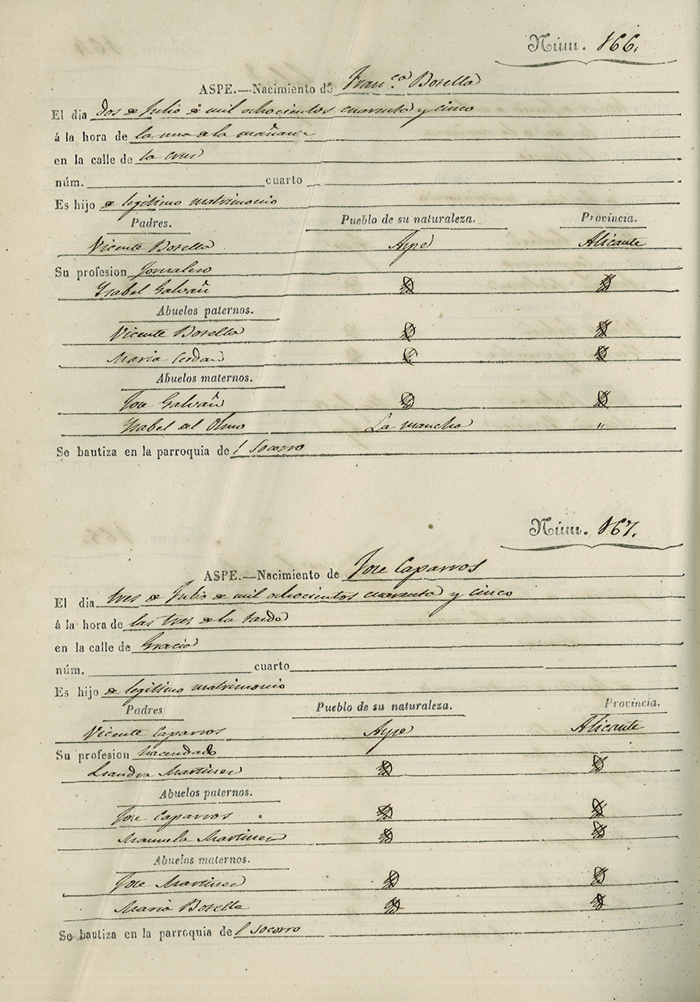 Núm. 166.
ASPE.—Nacimiento de Fran.ca Botella
El dia dos de Julio de mil ochocientos cuarenta y cinco
á la hora de la una de la mañana
en la calle de la cruz
núm. cuarto
Es hijo de legitimo matrimonio
Padres. Pueblo de su naturaleza. Provincia.
Vicente Botella Aspe Alicante
Su profesion Jornalero
Ysabel Galvañ
Abuelos paternos.
Vicente Botella
Maria Cerdan
Abuelos maternos.
Jose Galvañ
Ysabel del Olmo La mancha "
Se bautiza en la parroquia de l Socorro
Núm. 167.
ASPE.—Nacimiento de Jose Caparros
El dia tres de Julio de mil ochocientos cuarenta y cinco
á la hora de las tres de la tarde
en la calle de Gracia
núm. cuarto
Es hijo de legitimo matrimonio
Padres Pueblo de su naturaleza. Provincia.
Vicente Caparros Aspe Alicante
Su profesion hacendado
Leandra Martinez
Abuelos paternos.
Jose Caparros
Manuela Martinez
Abuelos maternos.
Jose Martinez
Maria Botella
Se bautiza en la parroquia de l Socorro